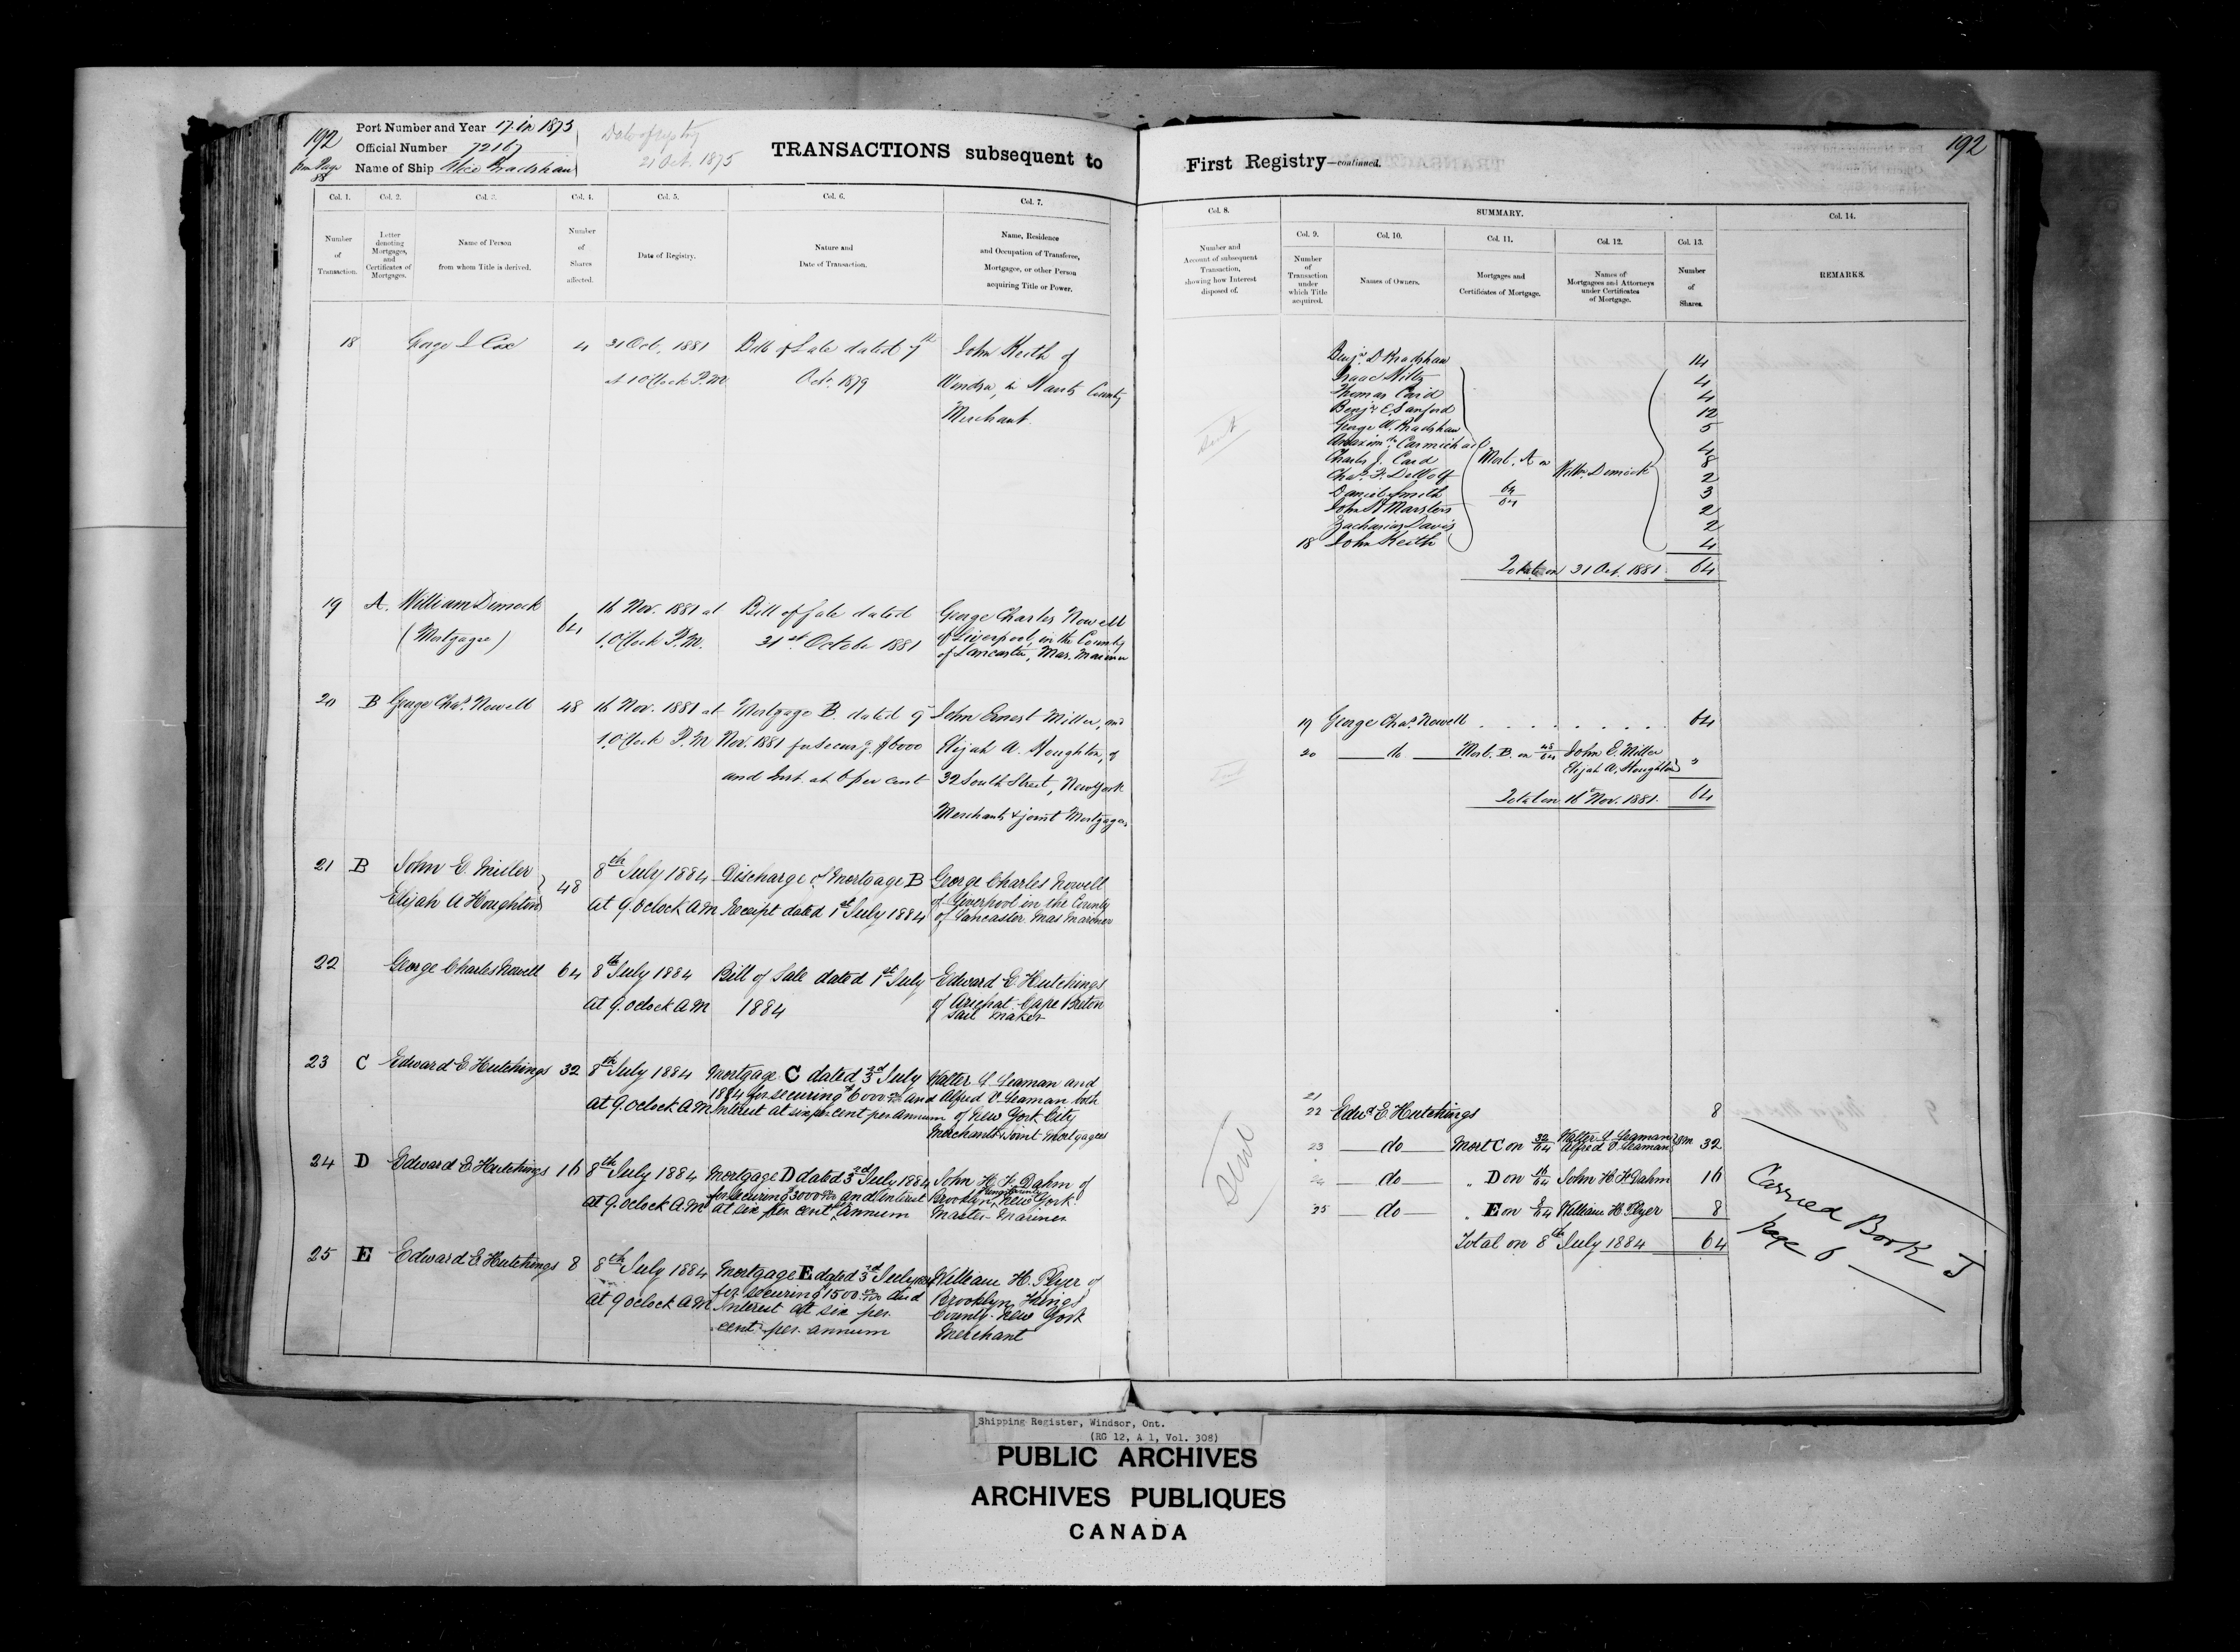 192
from Page
88
Port Number and Year 17 in 1875
Official Number 72167
Name of Ship Alice Bradshaw
Date of registry
21 Oct. 1875
TRANSACTIONS subsequent to
First Registry—continued.
192
Col. 1.
Number
of
Transaction.
Col. 2.
Letter
denoting
Mortgages,
and
Certificates of
Mortgages.
Col. 3.
Name of Person
from whom Title is derived.
Col. 4.
Number
of
Shares
affected.
Col. 5.
Date of Registry.
Col. 6.
Nature and
Date of Transaction.
Col. 7.
Name, Residence
and Occupation of Transferee,
Mortgagee, or other Person
acquiring Title or Power.
Col. 8.
Number and
Account of subsequent
Transaction,
showing how Interest
disposed of.
SUMMARY.
Col. 9.
Number
of
Transaction
under
which Title
acquired.
Col. 10.
Names of Owners.
Col. 11.
Mortgages and
Certificates of Mortgage.
Col. 12.
Names of
Mortgagees and Attorneys
under Certificates
of Mortgage.
Col. 13.
Number
of
Shares.
Col. 14.
REMARKS.
18
George J Cox
4
31 Oct, 1881
at 1 O'Clock P.M.
Bill of Sale dated 7th
Oct. 1879
John Keith of
Windsor, in Hants County
Merchant.
19 A. William Dimock
(Mortgagee)
64
16 Nov. 1881 at
1 O'Clock P.M.
Bill of Sale dated
31st October 1881
George Charles Nowell
of Liverpool, in the County
of Lancaster, Mas. Mariner
20 B George Chas. Nowell
48
16 Nov. 1881 at
1 O'Clock P.M
Mortgage B. dated 9
Nov. 1881 for Secur'g. $6000
and Inst. at 6 per cent
John Ernest Miller, and
Elijah A. Houghton, of
32 South Street, New York
Merchants & joint Mortgagees
21 B John E. Miller
Elijah A Houghton
48
8th July 1884
at 9. oclock A.M
Discharge of Mortgage B
Receipt dated 1st July 1884
George Charles Nowell
of Liverpool in the County
of Lancaster Mas Mariner
22 George Charles Nowell
64
8th July 1884
at 9. oclock AM
Bill of Sale dated 1st July
1884
Edward E Hutchings
of Arichat Cape Breton
Sail Maker
23 C Edward E Hutchings
32
8th July 1884
at 9. oclock AM
Mortgage C dated 3rd July
1884 for securing $6000 00/100 and
Interest at six per cent per annum
Walter G Seaman and
Alfred V Seaman both
of New York City
Merchants Joint Mortgagees
24 D Edward E Hutchings
16
8th July 1884
at 9. oclock AM
Mortgage D dated 3rd July 1884
for securing $3000 00/100 and Interest
at six per cent per annum
John H. F. Dahm of
Brooklyn, Kings County New York
Master Mariner
25 E Edward E Hutchings
8
8th July 1884
at 9 oclock AM
Mortgage E dated 3rd July 1884
for securing $1500 00/100 and
Interest at six per
cent per annum
William H. Plyer of
Brooklyn Kings
County New York
Merchant
Sent
Benjn. D Bradshaw 14
Isaac Wiltz 4
Thomas Caird 4
Benjn E. Sanford 12
George W. Bradshaw 5
Anaxim'dr Carmichael 4
Charles J. Card 8
Chas. F. DeWolf 2
Daniel Smith 3
John W Marsters 2
Zacharias Davis 2
18 John Keith 4
Mort. A on
64/64
Willm Dimock
Total on 31 Oct. 1881 64
19 George Chas. Nowell . . . . . . . . . 64
20 do Mort. B. on 48/64 John E. Miller
Elijah A. Houghton "
Total on 16 Nov. 1881. 64
Sent
21
22 Edwd E Hutchings 8
23 do Mort C on 32/64 Walter G Seaman
Alfred V Seaman 32
24 do " D on 16/64 John H. F. Dahm 16
25 do " E on 8/64 William H. Plyer 8
Total on 8th July 1884 64
Sent
Carried Book J
page 6
Shipping Register, Windsor, Ont.
(RG 12, A 1, Vol. 308)
PUBLIC ARCHIVES
ARCHIVES PUBLIQUES
CANADA